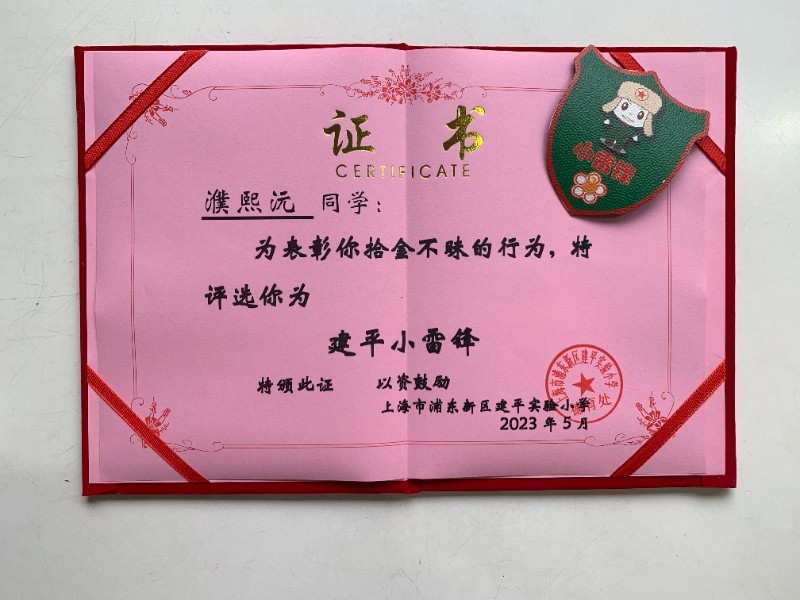 证书
CERTIFICATE
小雷锋
濮熙沅 同学：
为表彰你拾金不昧的行为，特
评选你为
建平小雷锋
特颁此证 以资鼓励
上海市浦东新区建平实验小学
上海市浦东新区建平实验小学
2023 年 5 月